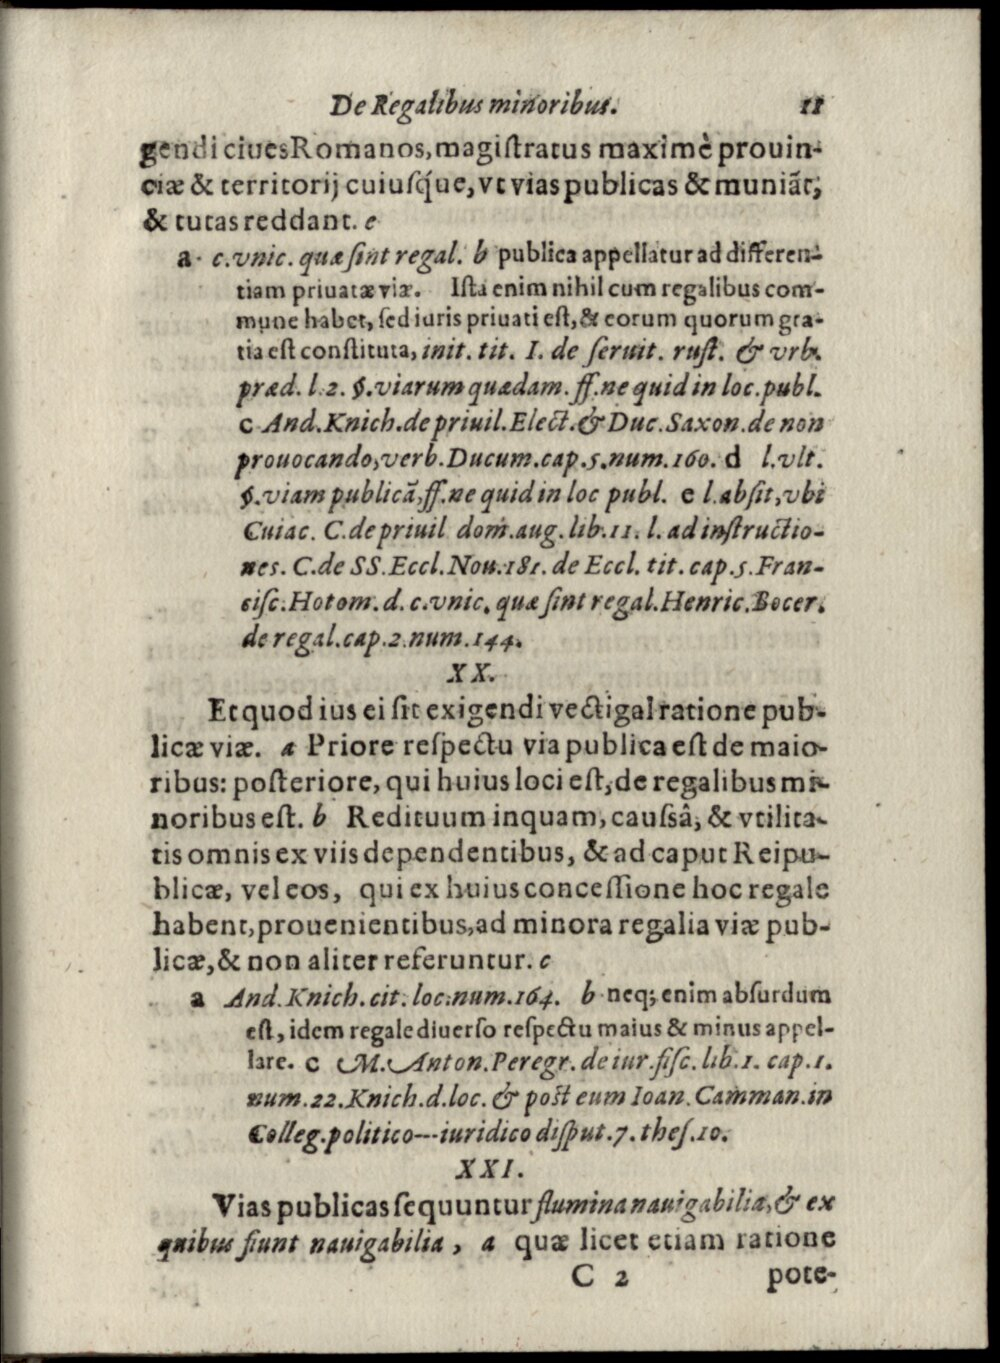 De Regalibus minoribus. 11
gendi ciues Romanos, magistratus maximè prouin-
ciæ & territorij cuiusq́ue, vt vias publicas & muniãt,
& tutas reddant. e
a. c. vnic. quæ sint regal. b publica appellatur ad differen-
tiam priuatæ viæ. Ista enim nihil cum regalibus com-
mune habet, sed iuris priuati est, & eorum quorum gra-
tia est constituta, init. tit. I. de seruit. rust. & vrb.
præd. l. 2. §. viarum quædam. ff. ne quid in loc. publ.
c And. Knich. de priuil. Elect. & Duc. Saxon. de non
prouocando, verb. Ducum. cap. 5. num. 160. d l. vlt.
§. viam publicã, ff. ne quid in loc publ. e l. absit, vbi
Cuiac. C. de priuil dom. aug. lib. 11. l. ad instructio-
nes. C. de SS. Eccl. Nou. 181. de Eccl. tit. cap. 5. Fran-
cisc. Hotom. d. c. vnic. quæ sint regal. Henric. Bocer.
de regal. cap. 2. num. 144.
XX.
Et quod ius ei sit exigendi vectigal ratione pub-
licæ viæ. a Priore respectu via publica est de maio-
ribus: posteriore, qui huius loci est, de regalibus mi-
noribus est. b Redituum inquam, caussâ, & vtilita-
tis omnis ex viis dependentibus, & ad caput Reipu-
blicæ, vel eos, qui ex huius concessione hoc regale
habent, prouenientibus, ad minora regalia viæ pub-
licæ, & non aliter referuntur. c
a And. Knich. cit. loc. num. 164. b neq; enim absurdum
est, idem regale diuerso respectu maius & minus appel-
lare. c M. Anton. Peregr. de iur. fisc. lib. 1. cap. 1.
num. 22. Knich. d. loc. & post eum Ioan. Camman. in
Colleg. politico--- iuridico disput. 7. thes. 10.
XXI.
Vias publicas sequuntur flumina nauigabilia, & ex
quibus fiunt nauigabilia, a quæ licet etiam ratione
C 2 pote-